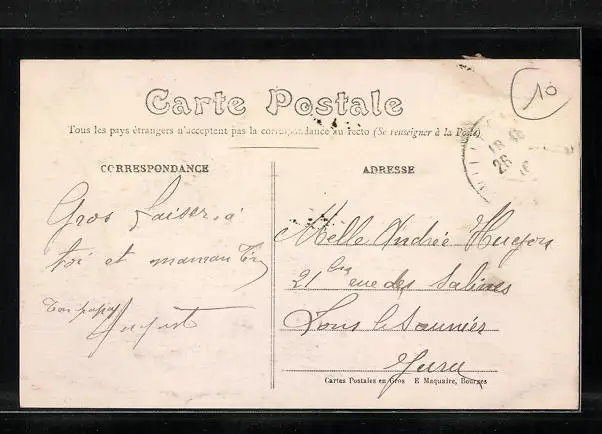 Carte Postale
Tous les pays étrangers n'acceptent pas la correspondance au recto (Se renseigner à la Poste)
CORRESPONDANCE
Gros baiser à
toi et maman
Ton papa
August
ADRESSE
Melle Andrée
21 bis rue des Salines
Lons le Saunier
Jura
Cartes Postales en Gros E Maquaire, Bourges
10
18
26